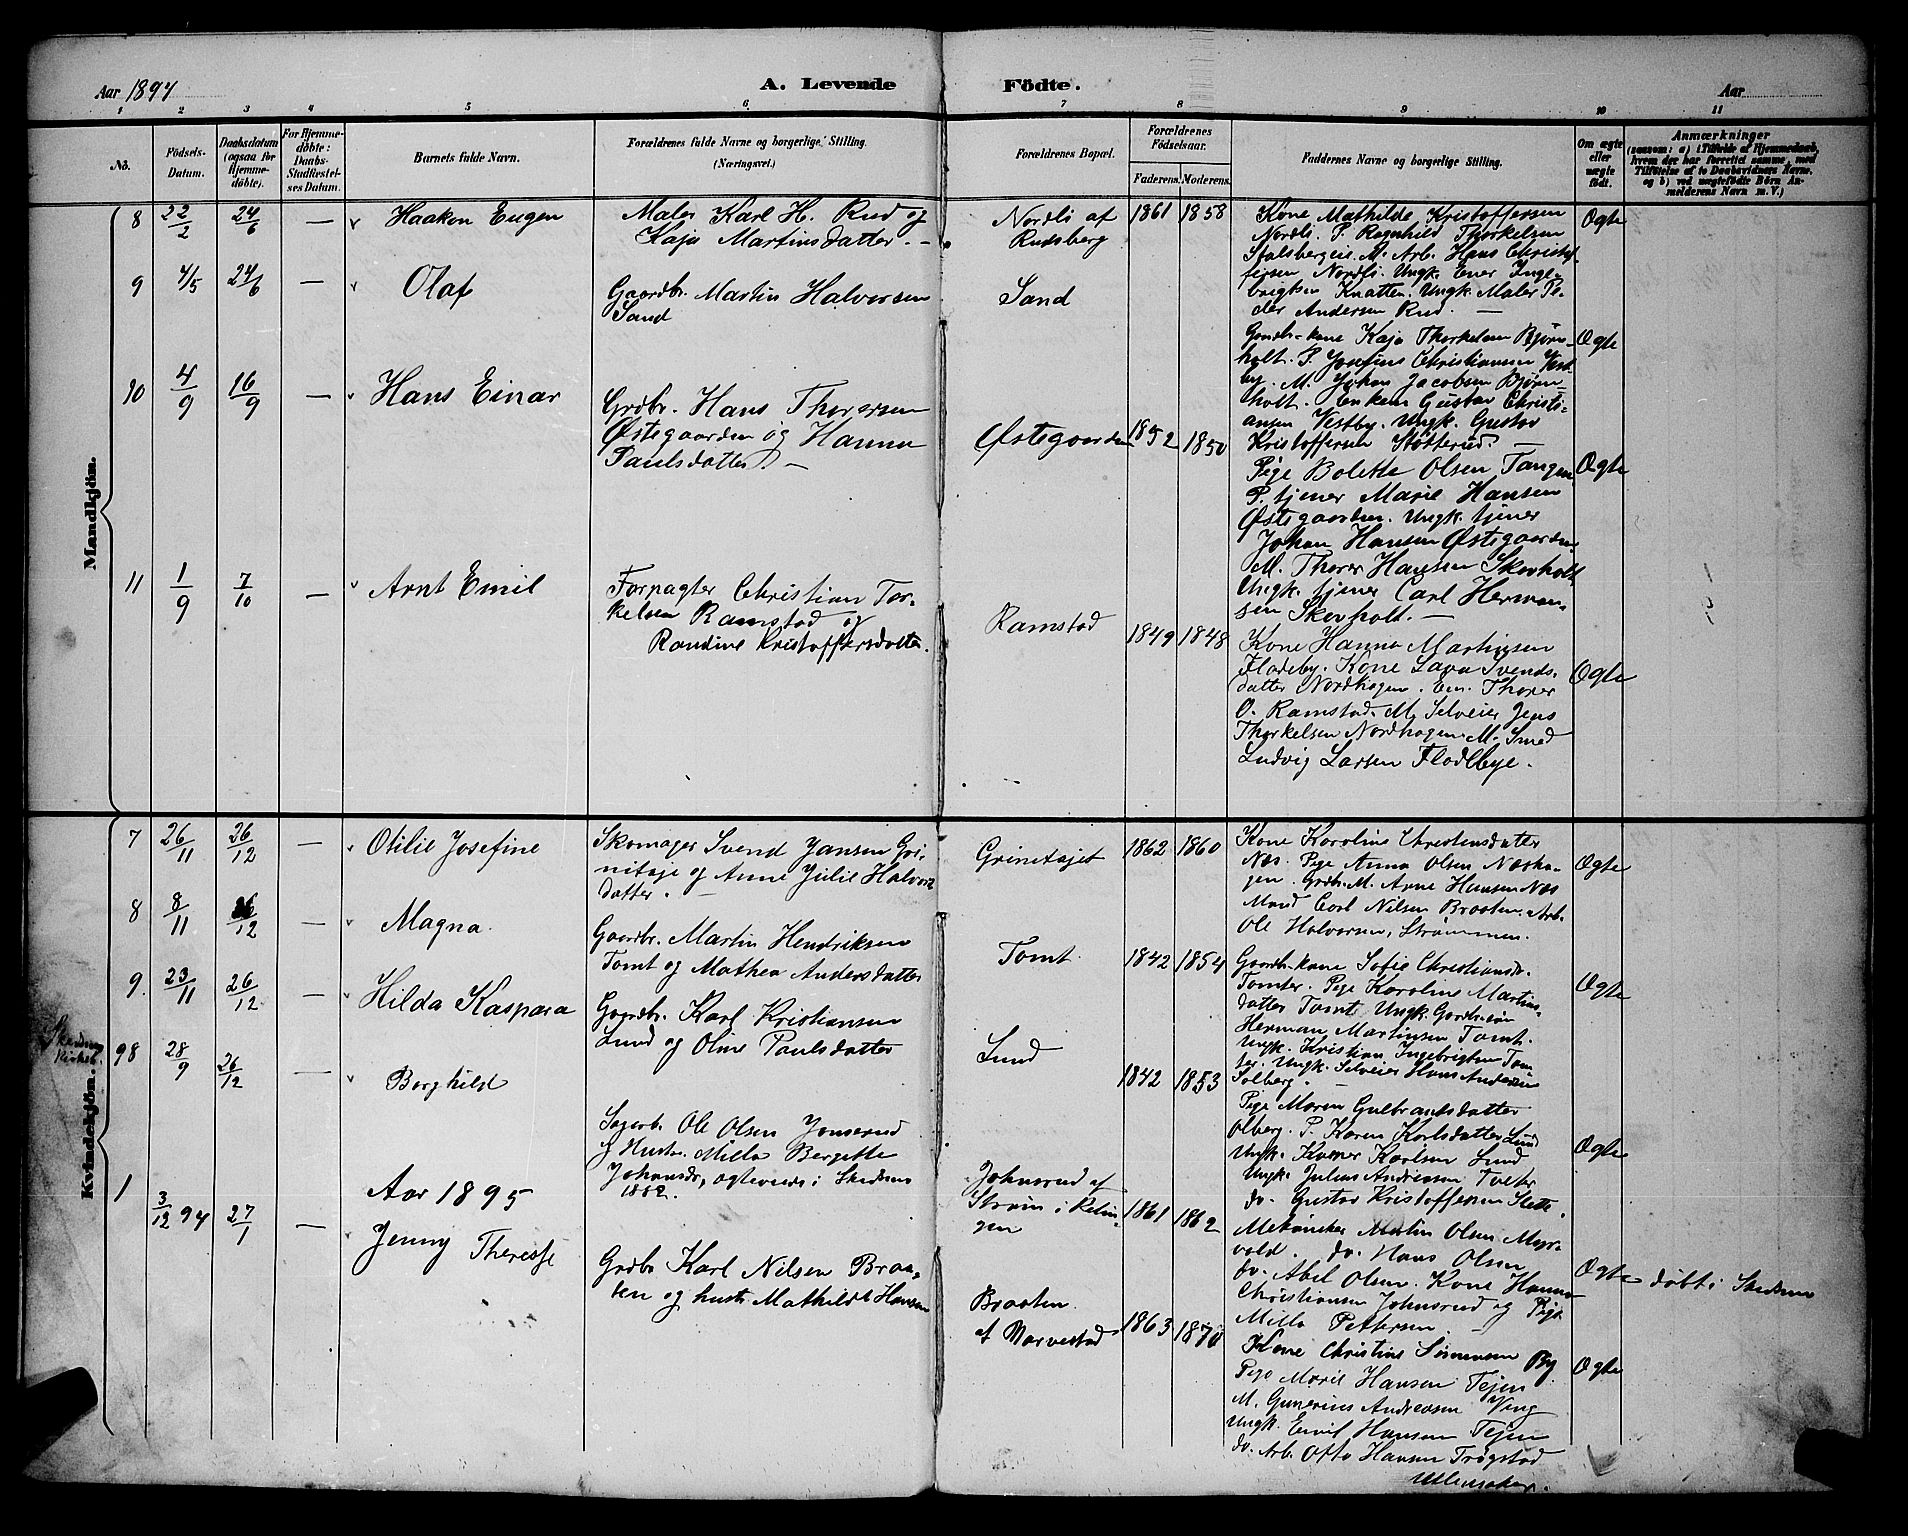 Aar 1894
A. Levende
Födte.
Aar
1 2 3 4 5 6 7 8 9 10 11
No.
Födsels-
Datum.
Daabsdatum
(ogsaa for
Hjemme-
döbte).
For Hjemme-
döbte:
Daabs-
Stadfæstel-
ses Datum.
Barnets fulde Navn.
Forældrenes fulde Navne og borgerlige Stilling.
(Næringsvei.)
Forældrenes Bopæl.
Forældrenes
Födselsaar.
Faderens. Moderens.
Faddernes Navne og borgerlige Stilling.
Om ægte
eller
uægte
födt.
Anmærkninger
(saasom: a) i Tilfælde af Hjemmedaab,
hvem der har forrettet samme, med
Tilföielse af to Daabsvidners Navne,
og b) ved uægtefödte Börn An-
melderens Navn m. V.)
Mandkjön.
8 22/2 24/6 — Haakon Eugen
Maler Karl H. Rud og
Kaja Martinsdatter. —
Nordli af
Rudsberg
1861 1858
Kone Mathilde Kristoffersen
Nordli. P. Ragnhild Thorkelsen
Stalsbergeie. M. Arb. Hans Christof-
fersen Nordli. Ungk. Ener Inge-
brigtsen Knatten. Ungk. Maler Pe-
der Andersen Rud. —
Ægte
9 4/5 24/6 — Olaf
Gaardbr. Martin Halvorsen
Sand
Sand
Gaardbr.-kone Kaja Thorkelsen Bjørn-
holt. P. Josefine Christiansen Vest-
by. M. Johan Jacobsen Bjørn-
holt. Enkem. Gustav Christi-
ansen Vestby. Ungk. Gustav
Kristoffersen Støtterud.
Ægte
10 4/9 16/9 — Hans Einar
Grdbr. Hans Thorersen
Østegaarden og Hanna
Paulsdatter —
Østegaarden
1852 1850
Pige Bolette Olsen Tangen
P. tjener Marie Hansen
Østegaarden. Ungk. tjener
Johan Hansen Østegaarden.
M. Thorer Hansen Skovholt
Ungk. tjener Carl Herman-
sen Skovholt. —
Ægte
11 1/9 7/10 — Arnt Emil
Forpagter Christian Tor-
kelsen Ramstad og
Randine Kristoffersdatter.
Ramstad
1849 1848
Kone Hanna Martinsen
Fladeby. Kone Lava Svends-
datter Nordhagen. Em. Thorer
O. Ramstad. M. Selveier Jens
Thorkelsen Nordhagen. M. Smed
Ludvig Larsen Fladbye.
Ægte
Kvindekjön.
7 26/11 26/12 — Otilie Josefine
Skomager Svend Jansen Gri-
nitaje og Anne Julie Halvors
datter. —
Grinetajet
1862 1860
Kone Karoline Christensdatter
Næs. Pige Anna Olsen Næsha-
gen. Grdbr. M. Arne Hansen Næs
Mand Carl Nilsen Braaten. Arb.
Ole Halvorsen, Strømmen.
Ægte
8 8/11 26/12 — Magna.
Gaardbr. Martin Hendriksen
Tomt og Mathea Andersdatter
Tomt.
1842 1854
Gaardbr.-kone Sofie Christiansdr.
Tomter. Pige Karoline Martins-
datter Tomt. Ungk. Gaardbr.søn
Herman Martinsen Tomt.
Ungk. Kristian Ingebrigtsen Tom-
ter. Ungk. Selveier Hans Andersen
Solberg. —
Ægte
9. 23/11 26/12 — Hilda Kaspara
Gaardbr. Karl Kristiansen
Lund og Olme Paulsdatter
Lund
1842 1853
Pige Maren Gulbrandsdatter
Olberg. P. Karen Karlsdatter Lund
Ungk. Kaspar Karlsen Lund
Ungk. Julius Andreasen Tveter
do. Gustav Kristoffersen Slette.
Ægte
Skedsmo
Kirkeb.
98 28/9 26/12 — Borghild
Sagarb. Ole Olsen Jonsrud
og Hustr. Milla Bergette
Johansdr, ægteviede i Skedsmo
1882.
Johnsrud af
Strøm i Reling-
en
1861 1862
Mekaniker Martin Olsen Myr-
vold. do. Hans Olsen
do. Abel Olsen. Kone Hanna
Christiansen Johnsrud og Pige
Milla Pettersen. —
Ægte
døbt i Skedsmo
Aar 1895
1 3/12 94 27/1 — Jenny Therese
Grdbr Karl Nilsen Braa-
ten og hustr Mathilde Hansen
Braaten
af Narvestad
1863 1870
Kone Christine Sørensen By
Pige Marie Hansen Tejen
M. Gunerius Andreasen Ving
Ungk. Emil Hansen Tejen
do. Arb. Otto Hansen Trøgstad
Ullensaker.
Ægte